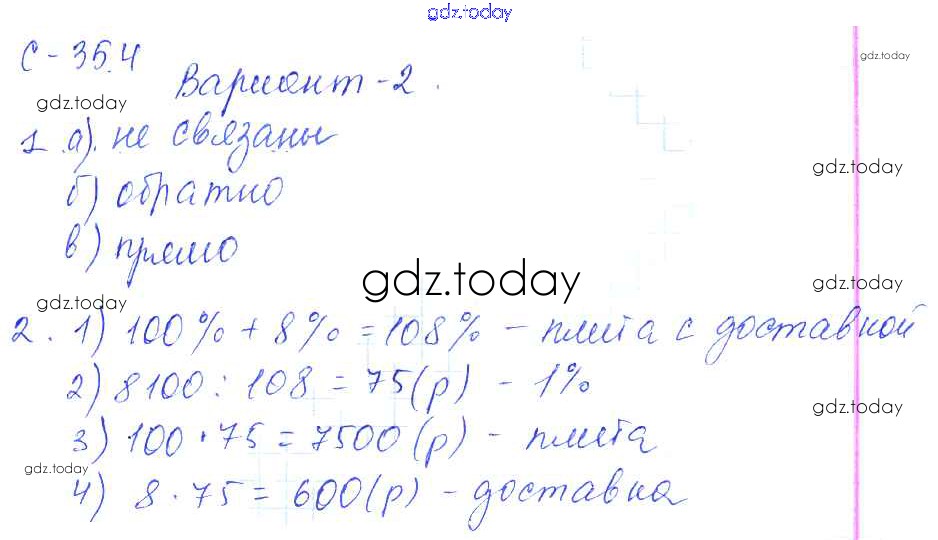 gdz.today
С-35.4
gdz.today
Вариант-2.
gdz.today
1 а). не связаны
gdz.today
б) обратно
в) прямо
gdz.today
gdz.today
gdz.today
2. 1) 100% + 8% = 108% - плита с доставкой
2) 8100 : 108 = 75(р) - 1%
gdz.today
3) 100 · 75 = 7500 (р) - плита
gdz.today
4) 8 · 75 = 600(р) - доставка